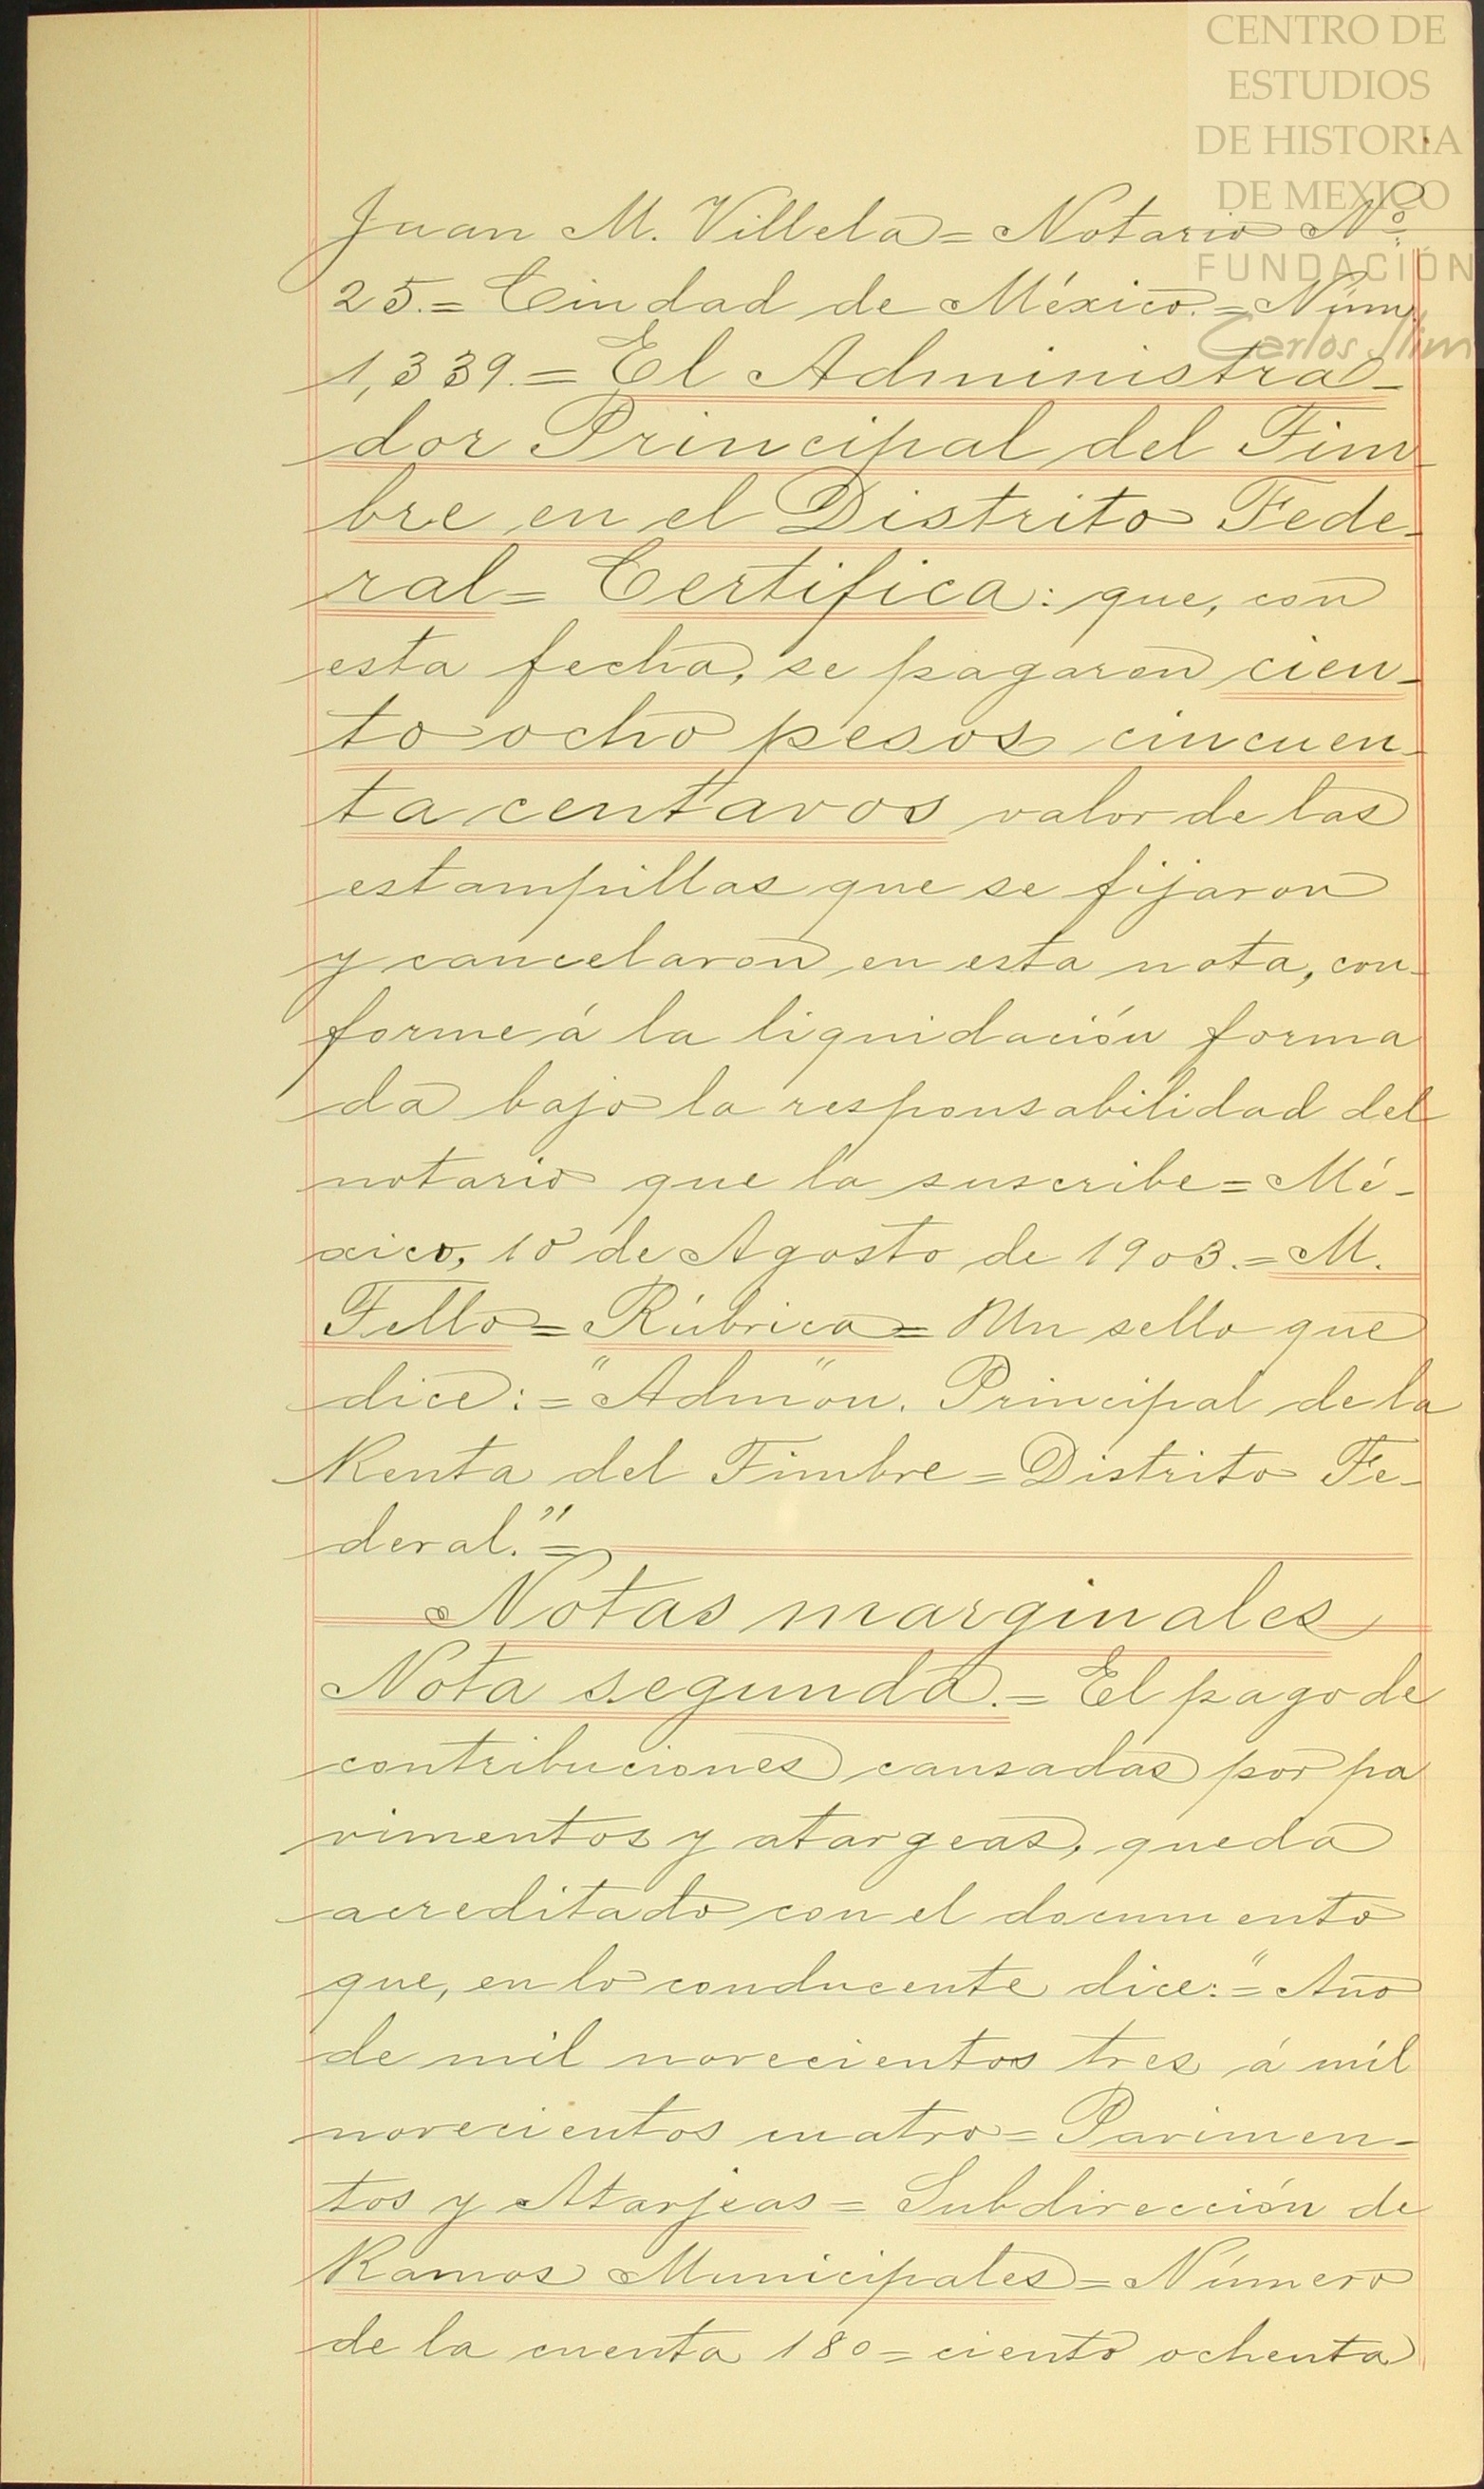 CENTRO DE
ESTUDIOS
DE HISTORIA
DE MEXICO
FUNDACIÓN
Carlos Slim
Juan M. Villela = Notario Nº.
25. = Ciudad de México. = Núm.
1,339. = El Administra-
dor Principal del Tim-
bre en el Distrito Fede-
ral = Certifica: que, con
esta fecha, se pagaron cien-
to ocho pesos cincuen-
ta centavos valor de las
estampillas que se fijaron
y cancelaron en esta nota, con-
forme á la liquidación forma
da bajo la responsabilidad del
notario que la suscribe = Mé-
xico, 10 de Agosto de 1903. = M.
Tello = Rúbrica = Un sello que
dice: = "Adm"on. Principal de la
Renta del Timbre = Distrito Fe-
deral." =
Notas marginales
Nota segunda. = El pago de
contribuciones causadas por pa
vimentos y atargeas, queda
acreditado con el documento
que, en lo conducente dice: "= Año
de mil novecientos tres á mil
novecientos cuatro = Pavimen-
tos y Atarjeas = Subdirección de
Ramos Municipales = Número
de la cuenta 180 = ciento ochenta